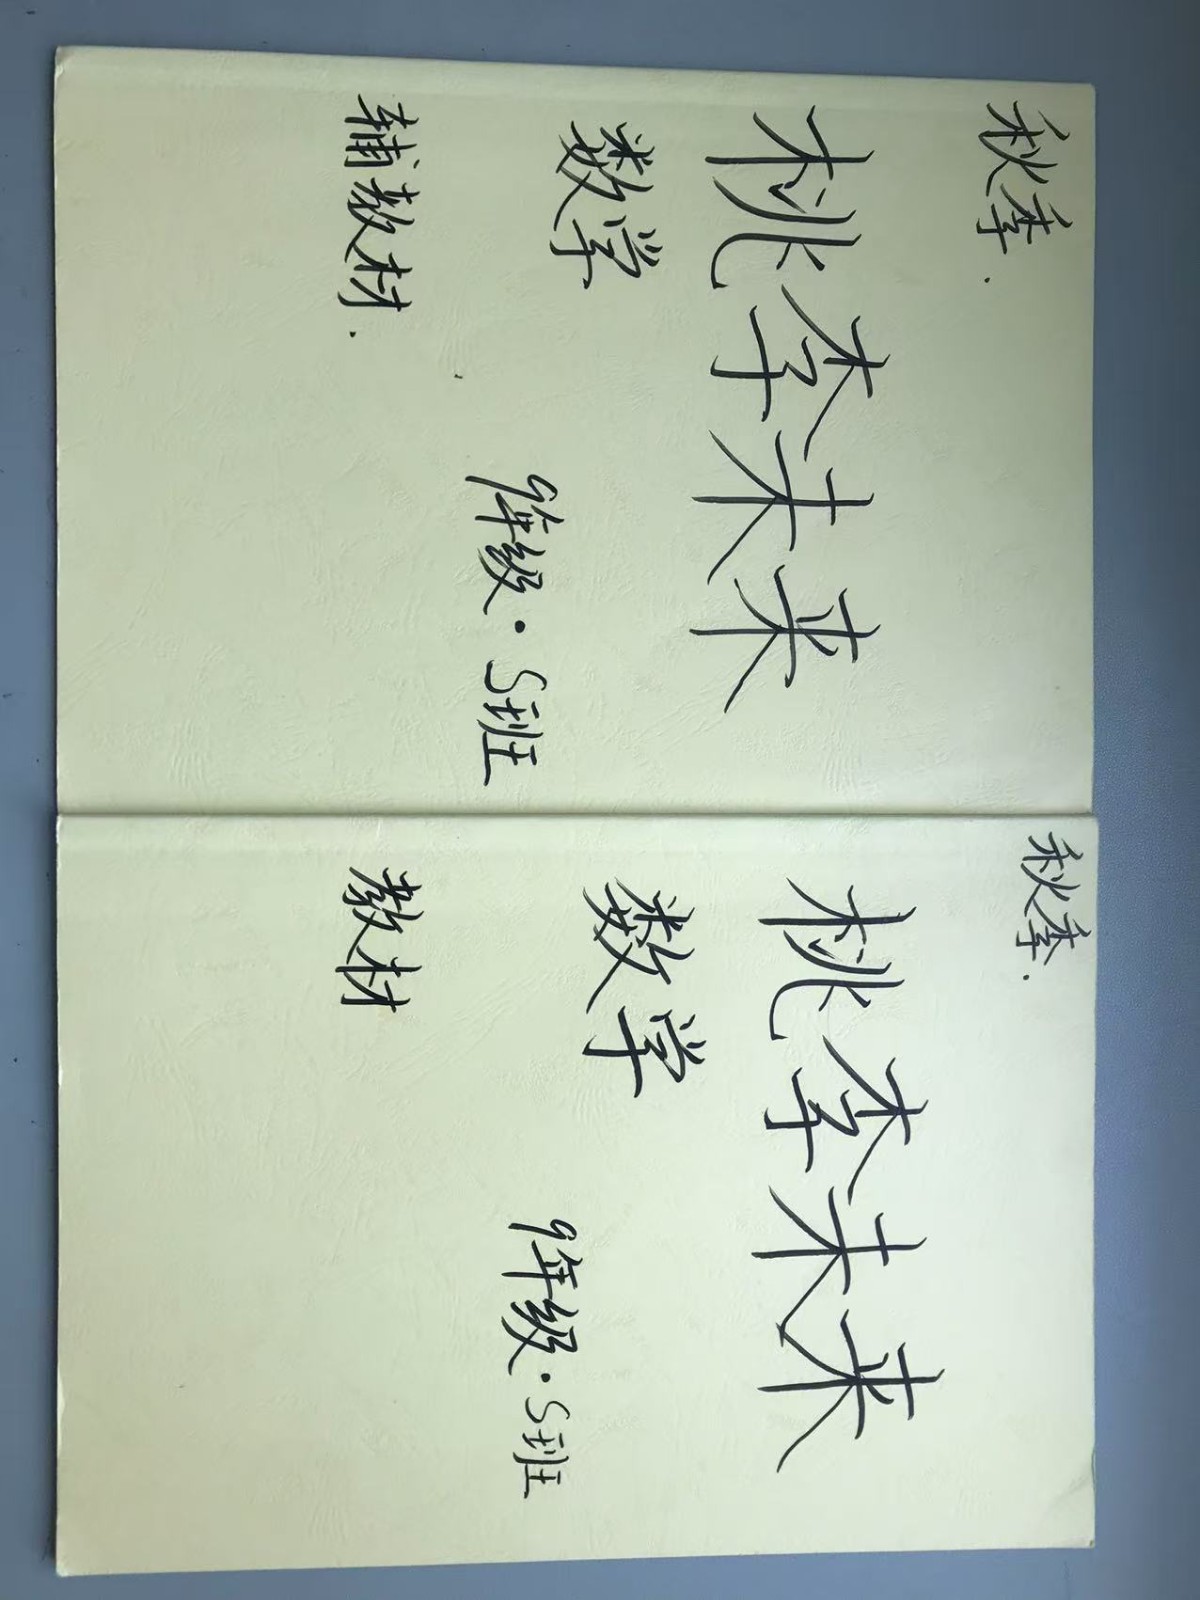 秋季.
桃李未来
数学
9年级·S班
辅教材.
秋季.
桃李未来
数学
9年级·S班
教材